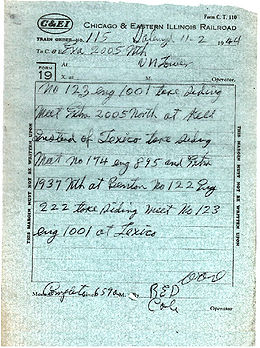 Form C. T. 110
C&EI CHICAGO & EASTERN ILLINOIS RAILROAD
TRAIN ORDER NO. 115 11-2 1944
To C&E Exa 2005 Nth
At VN Tower
FORM 19
X. at M. Operator.
No 123 eng 1001 take siding
Meet Extra 2005 North at Kell
instead of Texico take siding
Meet No 194 eng 895 and Extra
1937 Nth at Benton No 122 Eng
222 take siding meet No 123
eng 1001 at Texico
Made Complete 659 a M. By RED
Cole Operator
THIS MARGIN MUST NOT BE WRITTEN UPON
THIS MARGIN MUST NOT BE WRITTEN UPON